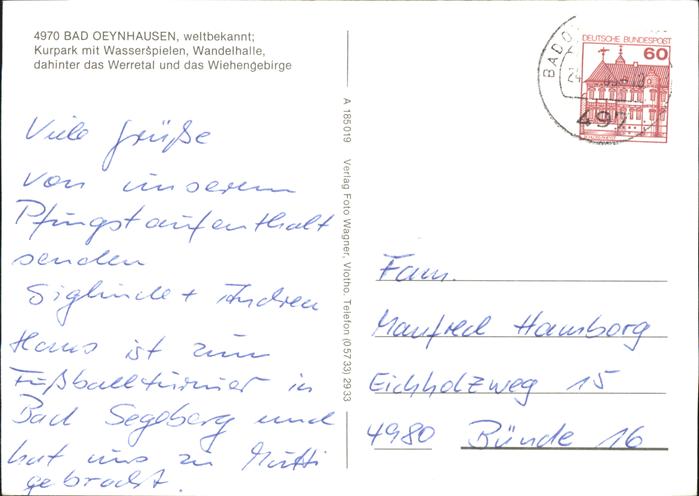 4970 BAD OEYNHAUSEN, weltbekannt;
Kurpark mit Wasserspielen, Wandelhalle,
dahinter das Werretal und das Wiehengebirge
Viele Grüße
von unserem
Pfingstaufenthalt
senden
Siglinde + Andrea
Hans ist zum
Fußballturnier in
Bad Segeberg und
hat uns zu Mutti
gebracht.
A 185019 Verlag Foto Wagner, Vlotho, Telefon (05733) 2933
DEUTSCHE BUNDESPOST
60
BAD O
24
497
Fam.
Manfred Hamborg
Eichholzweg 15
4980 Bünde 16